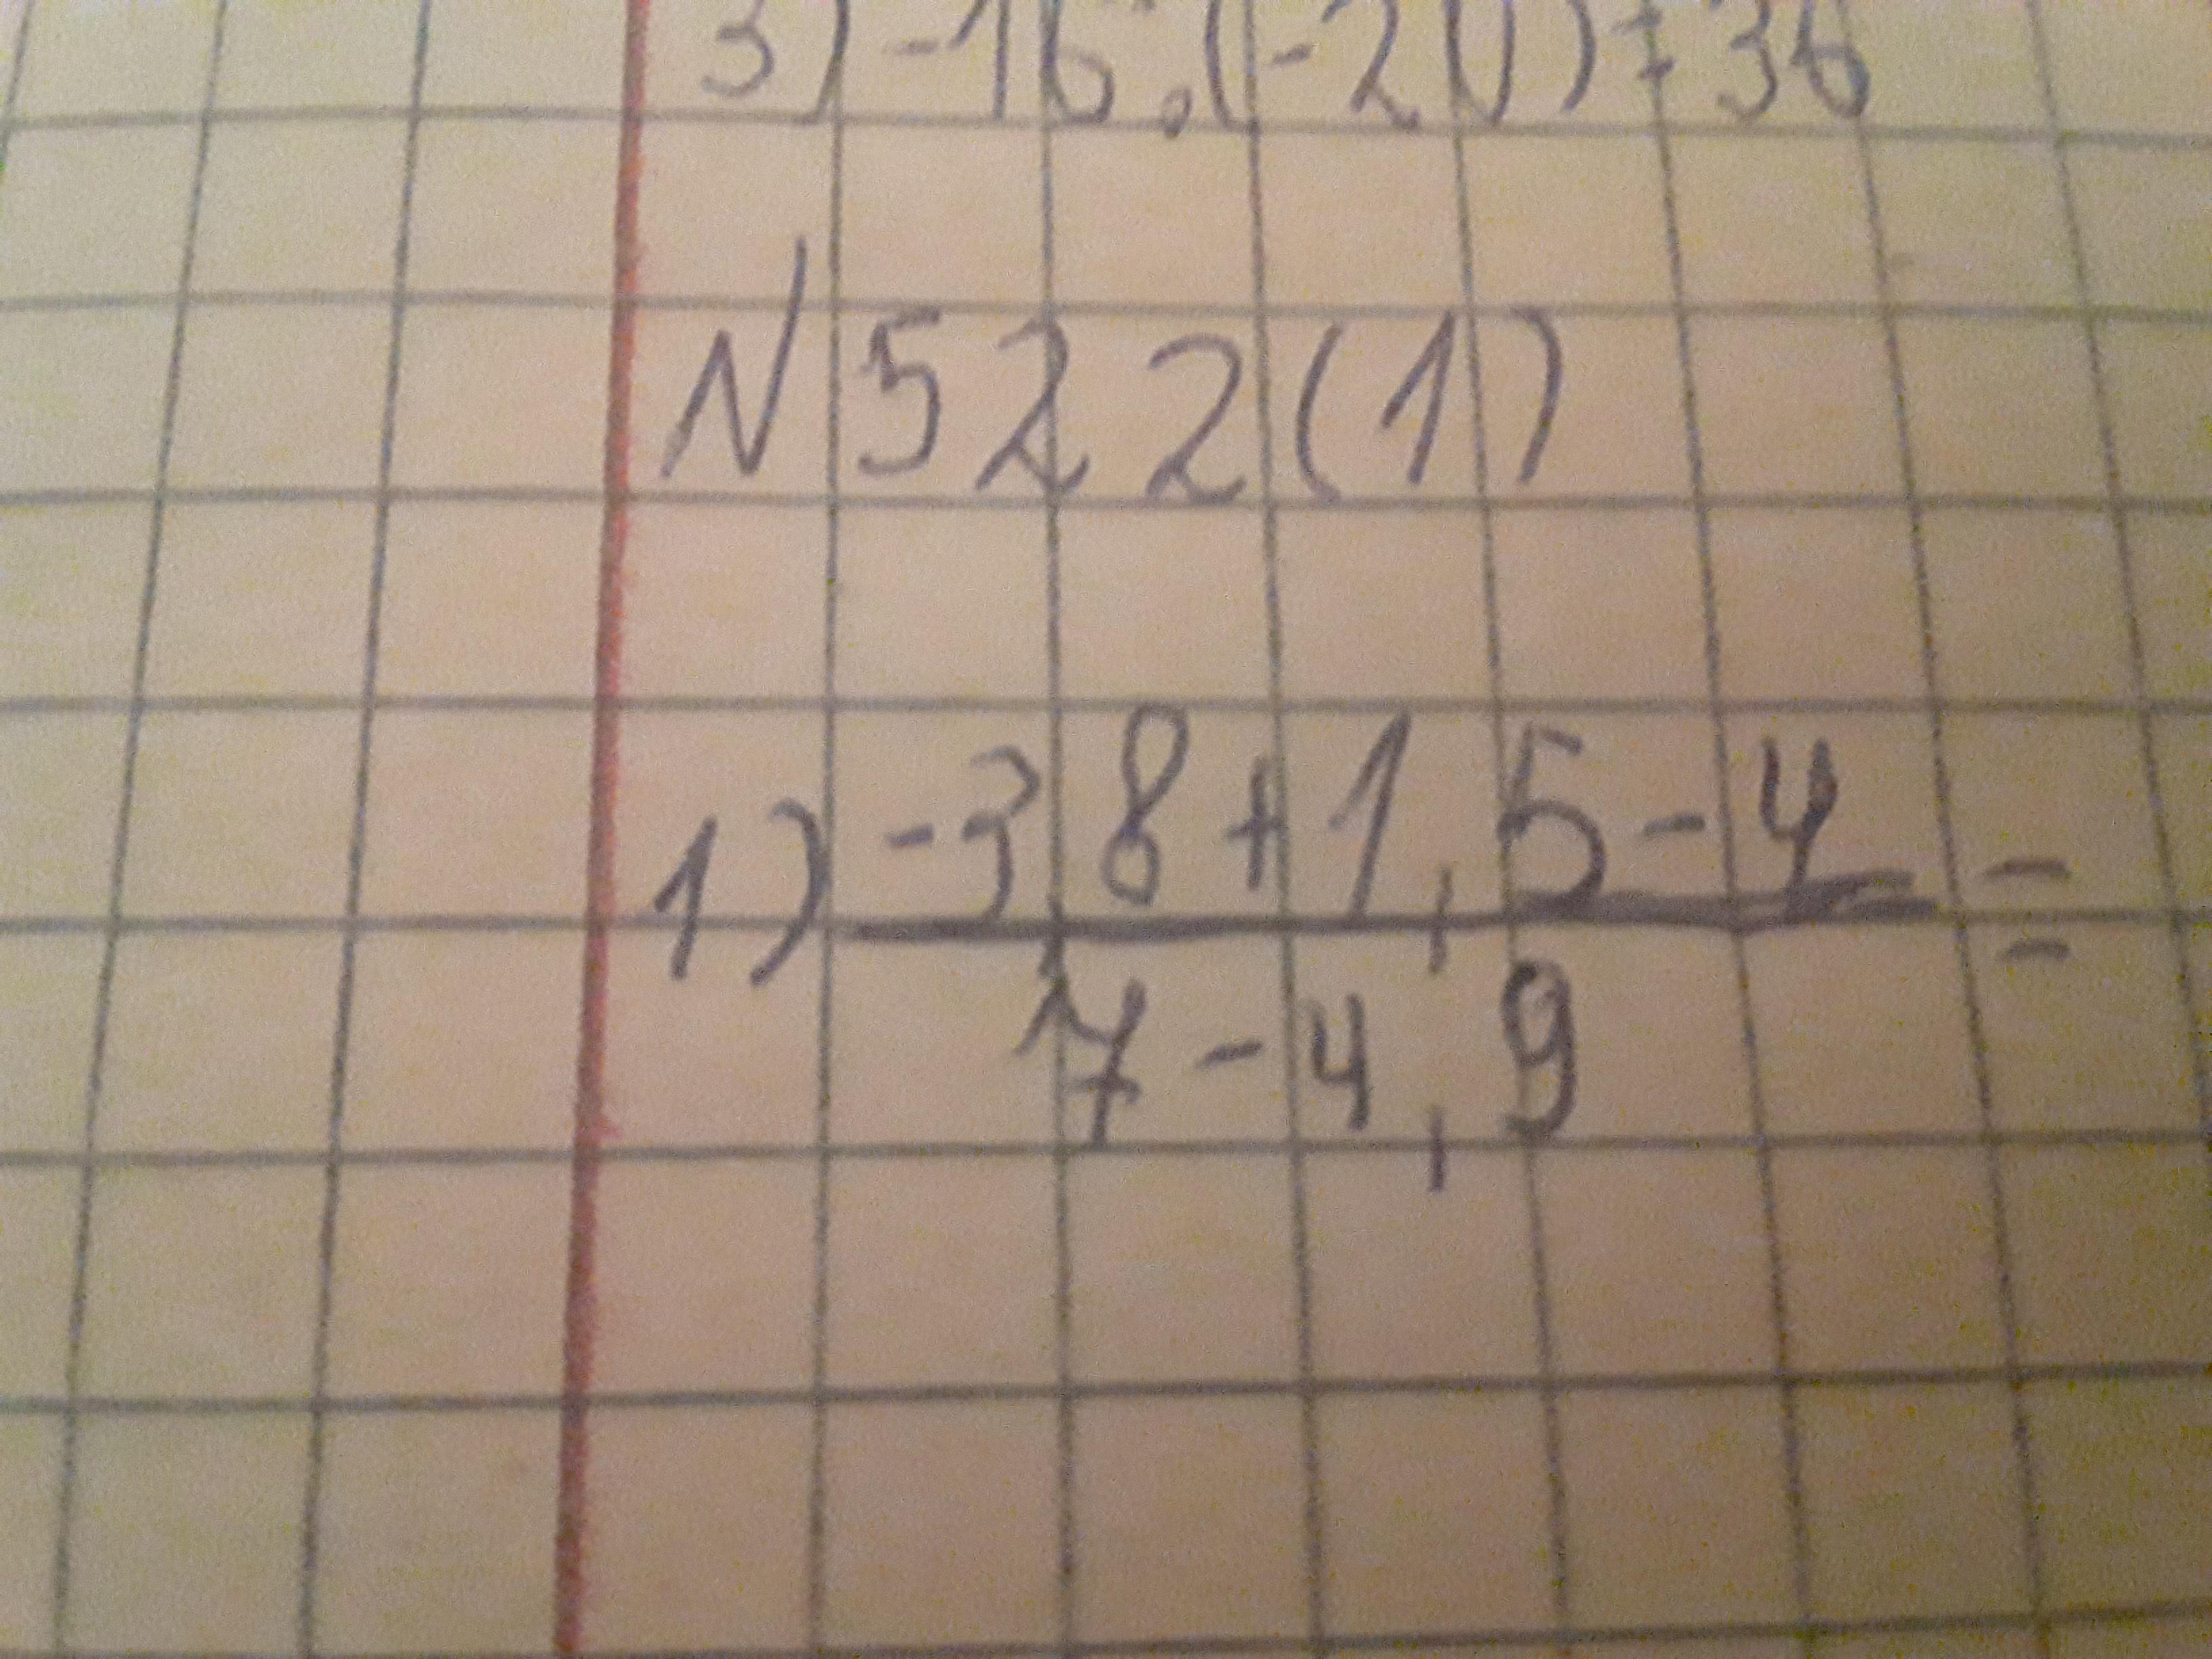 3) -16:(-20)+36
N522(1)
1) -3,8+1,5-4 =
7-4,9